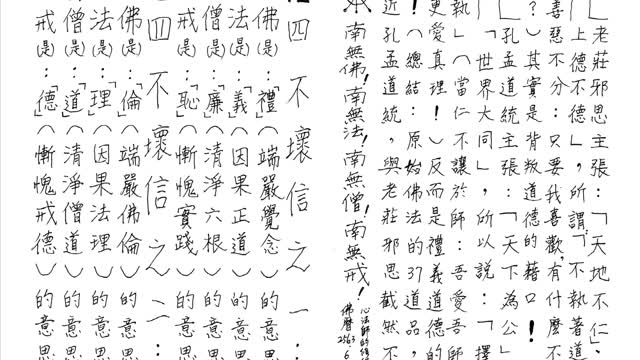 「老莊邪思主張：「天地不仁」
「上德不德」，所謂「不執善道
善惡不分，只要我喜歡，有什麼不
？）其實是：背叛道德的藉口！
「孔孟道統主張：「天下為公」
「世界大同」，所以說：「擇
執」（當仁不讓於師：吾愛吾師
更愛真理！）反而是禮義道德的
（總結：原始佛法的37道品，
近孔孟道統，與老莊邪思截然不
南無佛！南無法！南無僧！南無戒！
心法師的
佛曆2563.6.
四不壞信之一：
佛（是）：「禮」（端嚴覺念）的意思
法（是）：「義」（因果正道）的意思
僧（是）：「廉」（清淨六根）的意思
戒（是）：「恥」（慚愧實踐）的意思
四不壞信之二：
佛（是）：「倫」（端嚴佛倫）的意思
法（是）：「理」（因果法理）的意思
僧（是）：「道」（清淨僧道）的意思
戒（是）：「德」（慚愧戒德）的意思